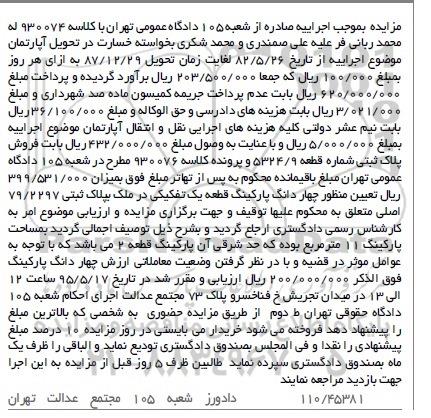 مزایده بموجب اجراییه صادره از شعبه ۱۰۵ دادگاه عمومی تهران با کلاسه ۹۳۰۰۷۴ له
محمد ربانی فر علیه علی صمندری و محمد شکری بخواسته خسارت در تحویل آپارتمان
موضوع اجراییه از تاریخ ۸۲/۵/۲۶ لغایت زمان تحویل ۸۷/۱۲/۲۹ به ازای هر روز
بمبلغ ۱۰۰/۰۰۰ ریال که جمعا ۲۰۳/۵۰۰/۰۰۰ ریال برآورد گردیده و پرداخت مبلغ
۶۲۰/۰۰۰/۰۰۰ ریال بابت عدم پرداخت جریمه کمیسون ماده صد شهرداری و مبلغ
۳/۰۲۱/۰۰۰ ریال بابت هزینه های دادرسی و حق الوکاله و مبلغ ۳۶/۱۰۰/۰۰۰ ریال
بابت نیم عشر دولتی کلیه هزینه های اجرایی نقل و انتقال آپارتمان موضوع اجراییه
بمبلغ ۵/۰۰۰/۰۰۰ ریال و با عنایت به وصول مبلغ ۴۳۲/۰۰۰/۰۰۰ ریال بابت فروش
پلاک ثبتی شماره قطعه ۵۳۲۴/۹ و پرونده کلاسه ۹۳۰۰۷۶ مطرح در شعبه ۱۰۵ دادگاه
عمومی تهران مبلغ باقیمانده محکوم به پس از تهاتر مبلغ فوق بمیزان ۳۹۹/۵۳۱/۰۰۰
ریال تعیین منظور چهار دانگ پارکینگ قطعه یک تفکیکی در ملک بپلاک ثبتی ۷۹/۲۲۹۷
اصلی متعلق به محکوم علیها توقیف و جهت برگزاری مزایده و ارزیابی موضوع امر به
کارشناس رسمی دادگستری ارجاع گردید و بشرح ذیل توصیف اجمالی گردید بمساحت
پارکینگ ۱۱ مترمربع بوده که حد شرقی آن پارکینگ قطعه ۲ می باشد که با توجه به
عوامل موثر در قضیه و با در نظر گرفتن وضعیت معاملاتی ارزش چهار دانگ پارکینگ
فوق الذکر ۲۰۰/۰۰۰/۰۰۰ ریال ارزیابی و مقرر شد در تاریخ ۹۵/۵/۱۷ ساعت ۱۲
الی ۱۳ در میدان تجریش خ فناخسرو پلاک ۷۳ مجتمع عدالت اجرای احکام شعبه ۱۰۵
دادگاه حقوقی تهران ط دوم از طریق مزایده حضوری به شخصی که بالاترین مبلغ
را پیشنهاد دهد فروخته می شود خریدار می بایستی در روز مزایده ۱۰ درصد مبلغ
پیشنهادی را نقدا و فی المجلس بصندوق دادگستری تودیع نماید و الباقی را ظرف یک
ماه بصندوق دادگستری سپرده نماید طالبین ظرف ۵ روز قبل از مزایده به این اجرا
جهت بازدید مراجعه نمایند
۱۱۰/۴۵۳۸۱ دادورز شعبه ۱۰۵ مجتمع عدالت تهران